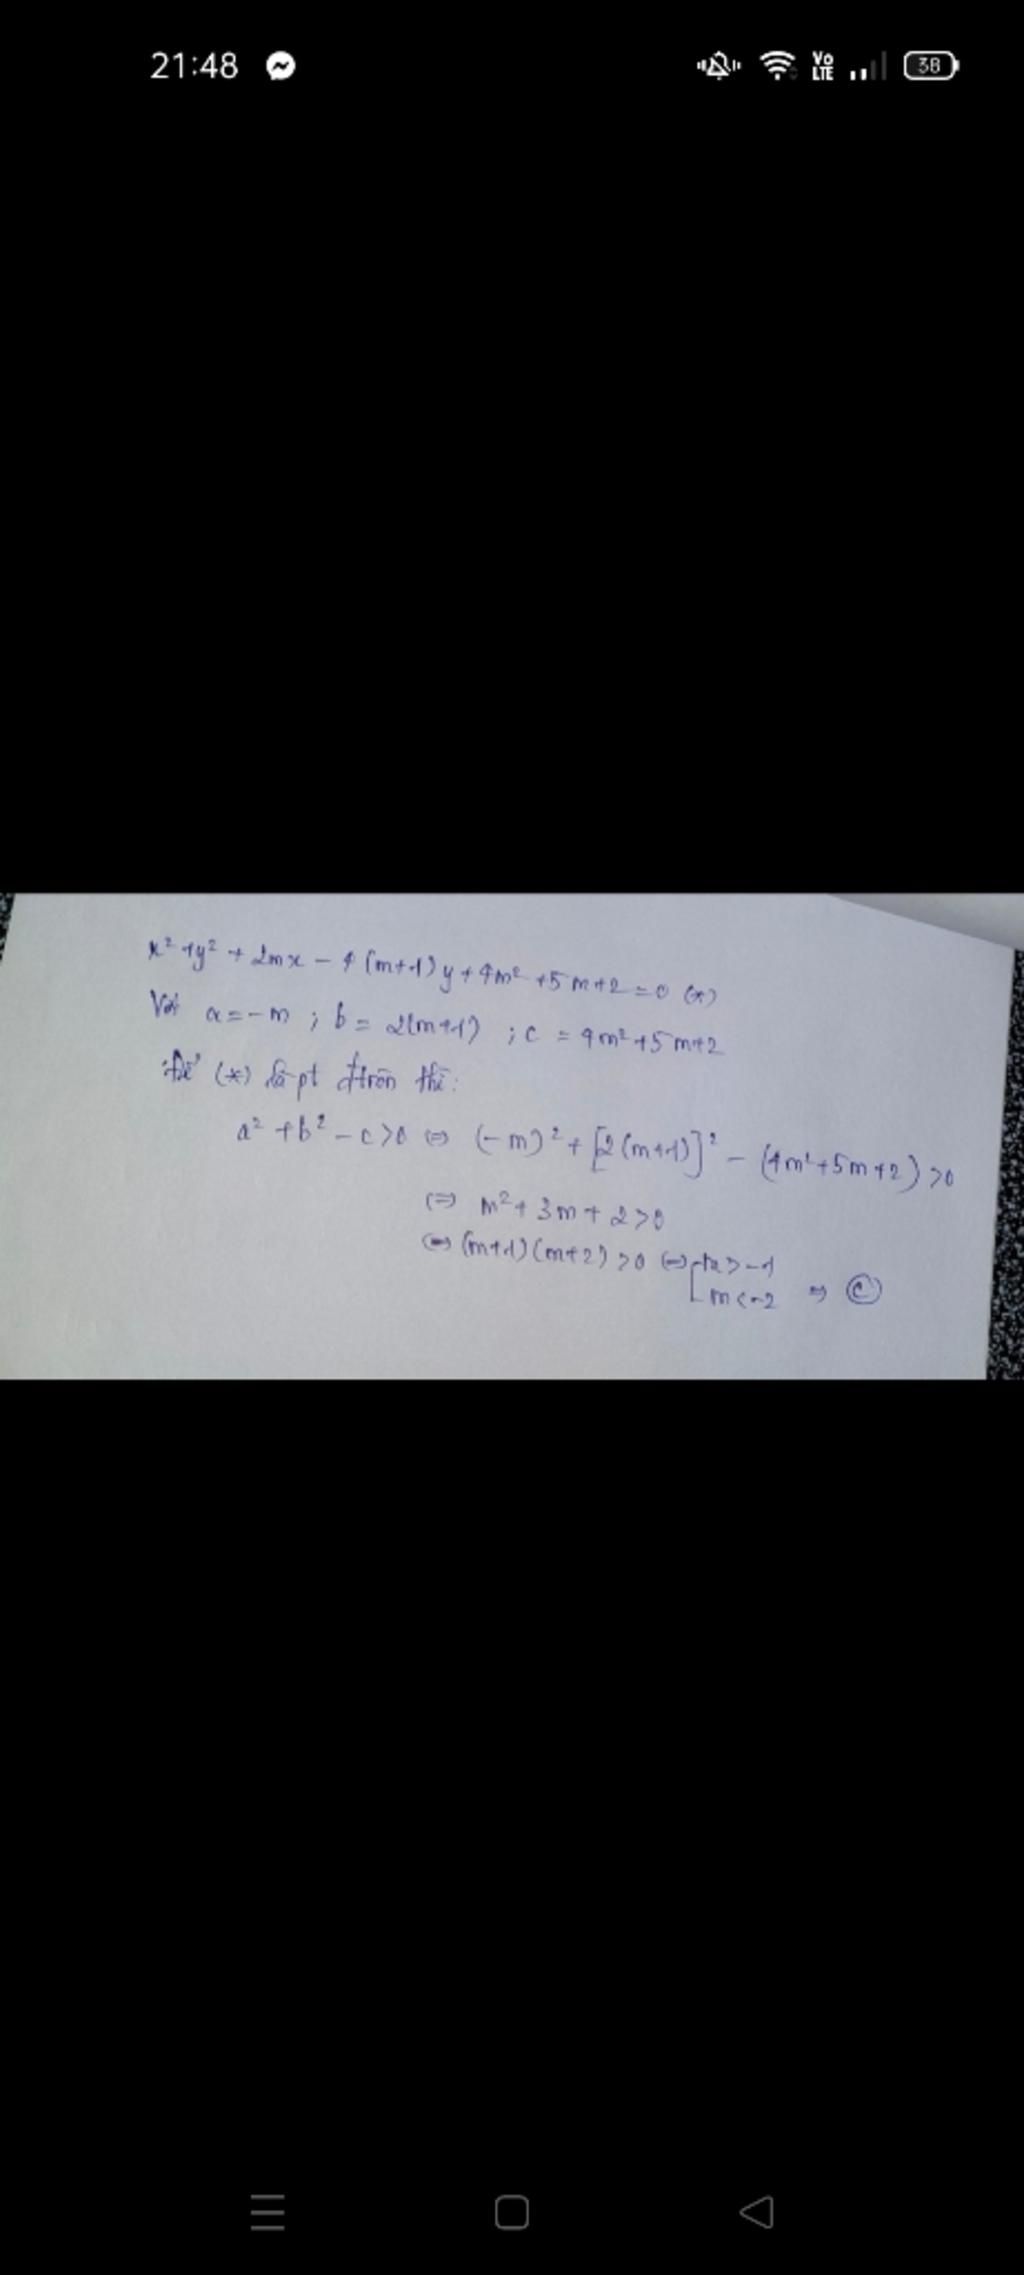 21:48
Vo LTE 38
x² + y² + 2mx - 4(m+1)y + 4m² + 5m + 2 = 0 (*)
Với a = -m ; b = 2(m+1) ; c = 4m² + 5m + 2
Để (*) là pt đtròn thì:
a² + b² - c > 0 ⇔ (-m)² + [2(m+1)]² - (4m² + 5m + 2) > 0
⇔ m² + 3m + 2 > 0
⇔ (m+1)(m+2) > 0 ⇔ [ m > -1
m < -2 ⇒ C